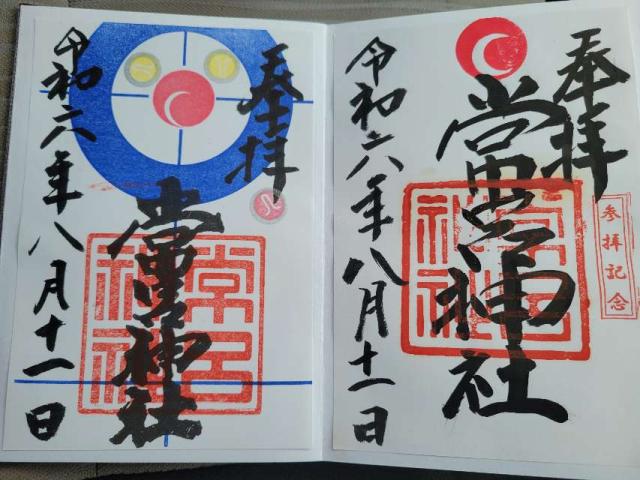 奉拝
参拝記念
常呂神社
常呂
神社
令和六年八月十一日
奉拝
常呂神社
常呂
神社
令和六年八月十一日